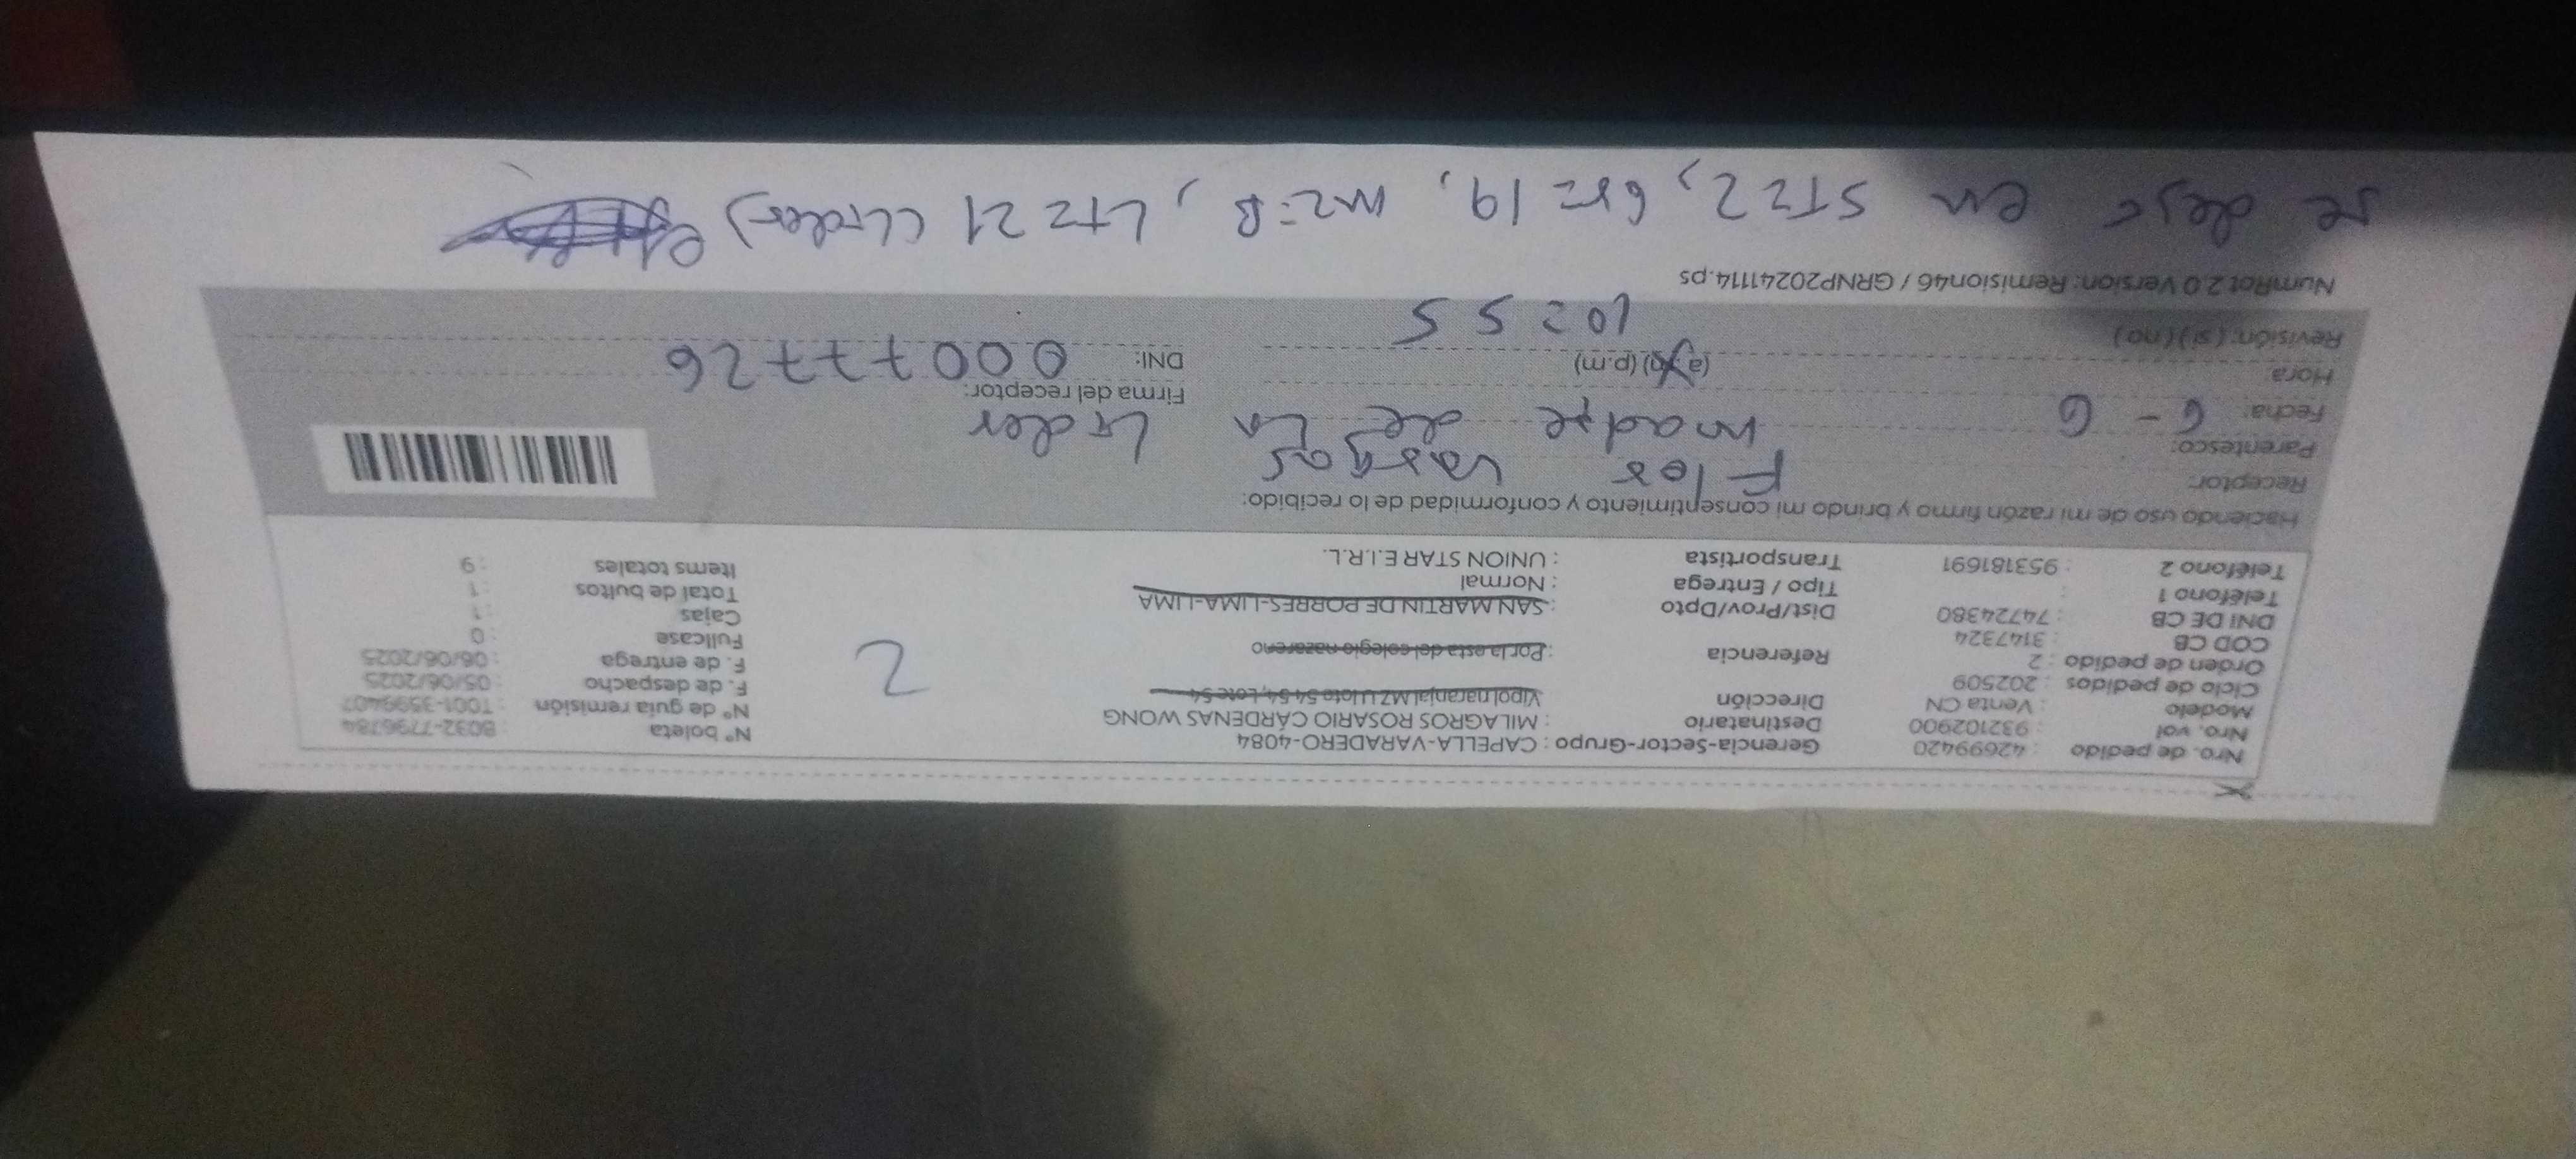 Nro. de pedido : 42699420 Gerencia-Sector-Grupo : CAPELLA-VARADERO-4084 N° boleta : B032-7796784
Nro. val : 932102900 Destinatario : MILAGROS ROSARIO CÁRDENAS WONG N° de guia remisión : T001-3599407
Modelo : Venta CN Dirección : Vipol naranjal MZ U lote 54 54, Lote 54 F. de despacho : 05/06/2025
Ciclo de pedidos : 202509 F. de entrega : 06/06/2025
Orden de pedido : 2 Referencia : Por la esta del colegio nazareno Fullcase : 0
COD CB : 3147324 Cajas : 1
DNI DE CB : 74724380 Dist/Prov/Dpto : SAN MARTIN DE PORRES-LIMA-LIMA Total de bultos : 1
Teléfono 1 : Tipo / Entrega : Normal Items totales : 9
Teléfono 2 : 953181691 Transportista : UNION STAR E.I.R.L.
2
Haciendo uso de mi razón firmo y brindo mi consentimiento y conformidad de lo recibido:
Receptor: Flor Vargas
Parentesco: madre de la Lider
Fecha: 6 - 6 Firma del receptor:
Hora: (a.m) (p.m) DNI: 00077726
Revisión: (si) (no) 10=55
NumRot 2.0 Version: Remision46 / GRNP20241114.ps
se dejo en ST=2, Gr=19, mz=B, LT=21 (Lider)